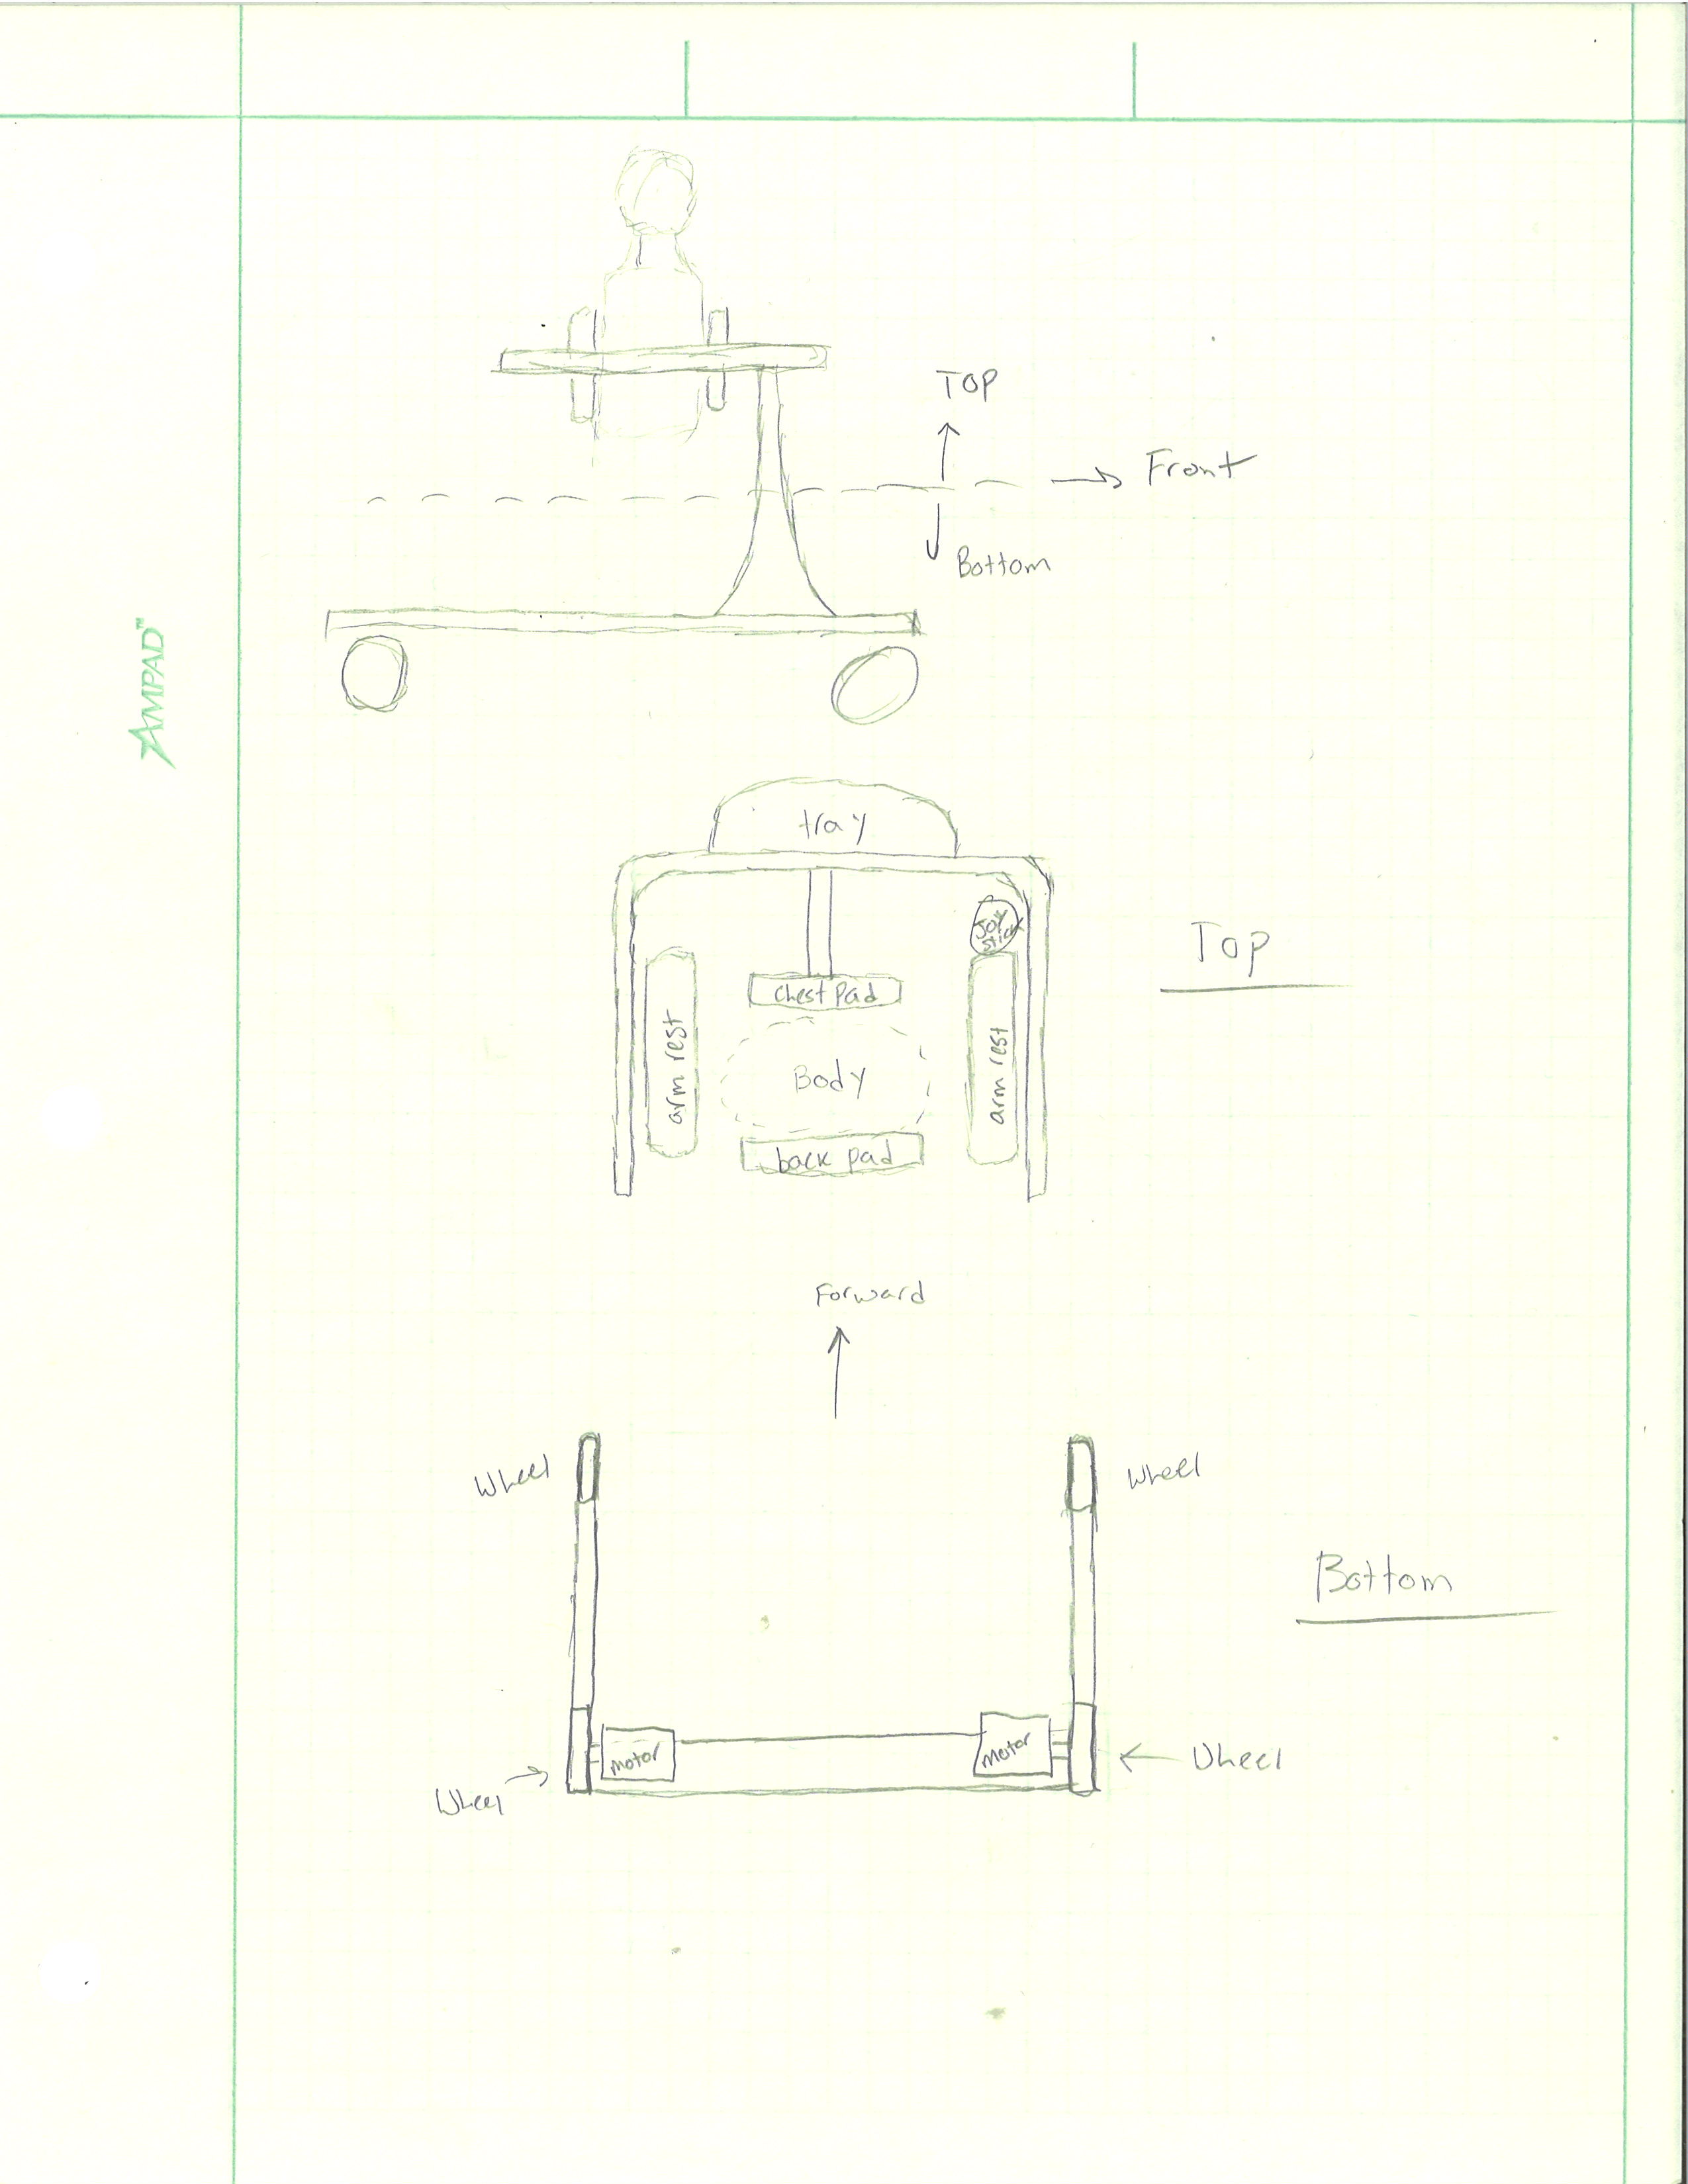 TOP
Front
Bottom
AMPAD™
tray
Joy
stick
Top
chest Pad
arm rest
Body
arm rest
back pad
Forward
Wheel
Wheel
Bottom
motor
motor
Wheel
Wheel